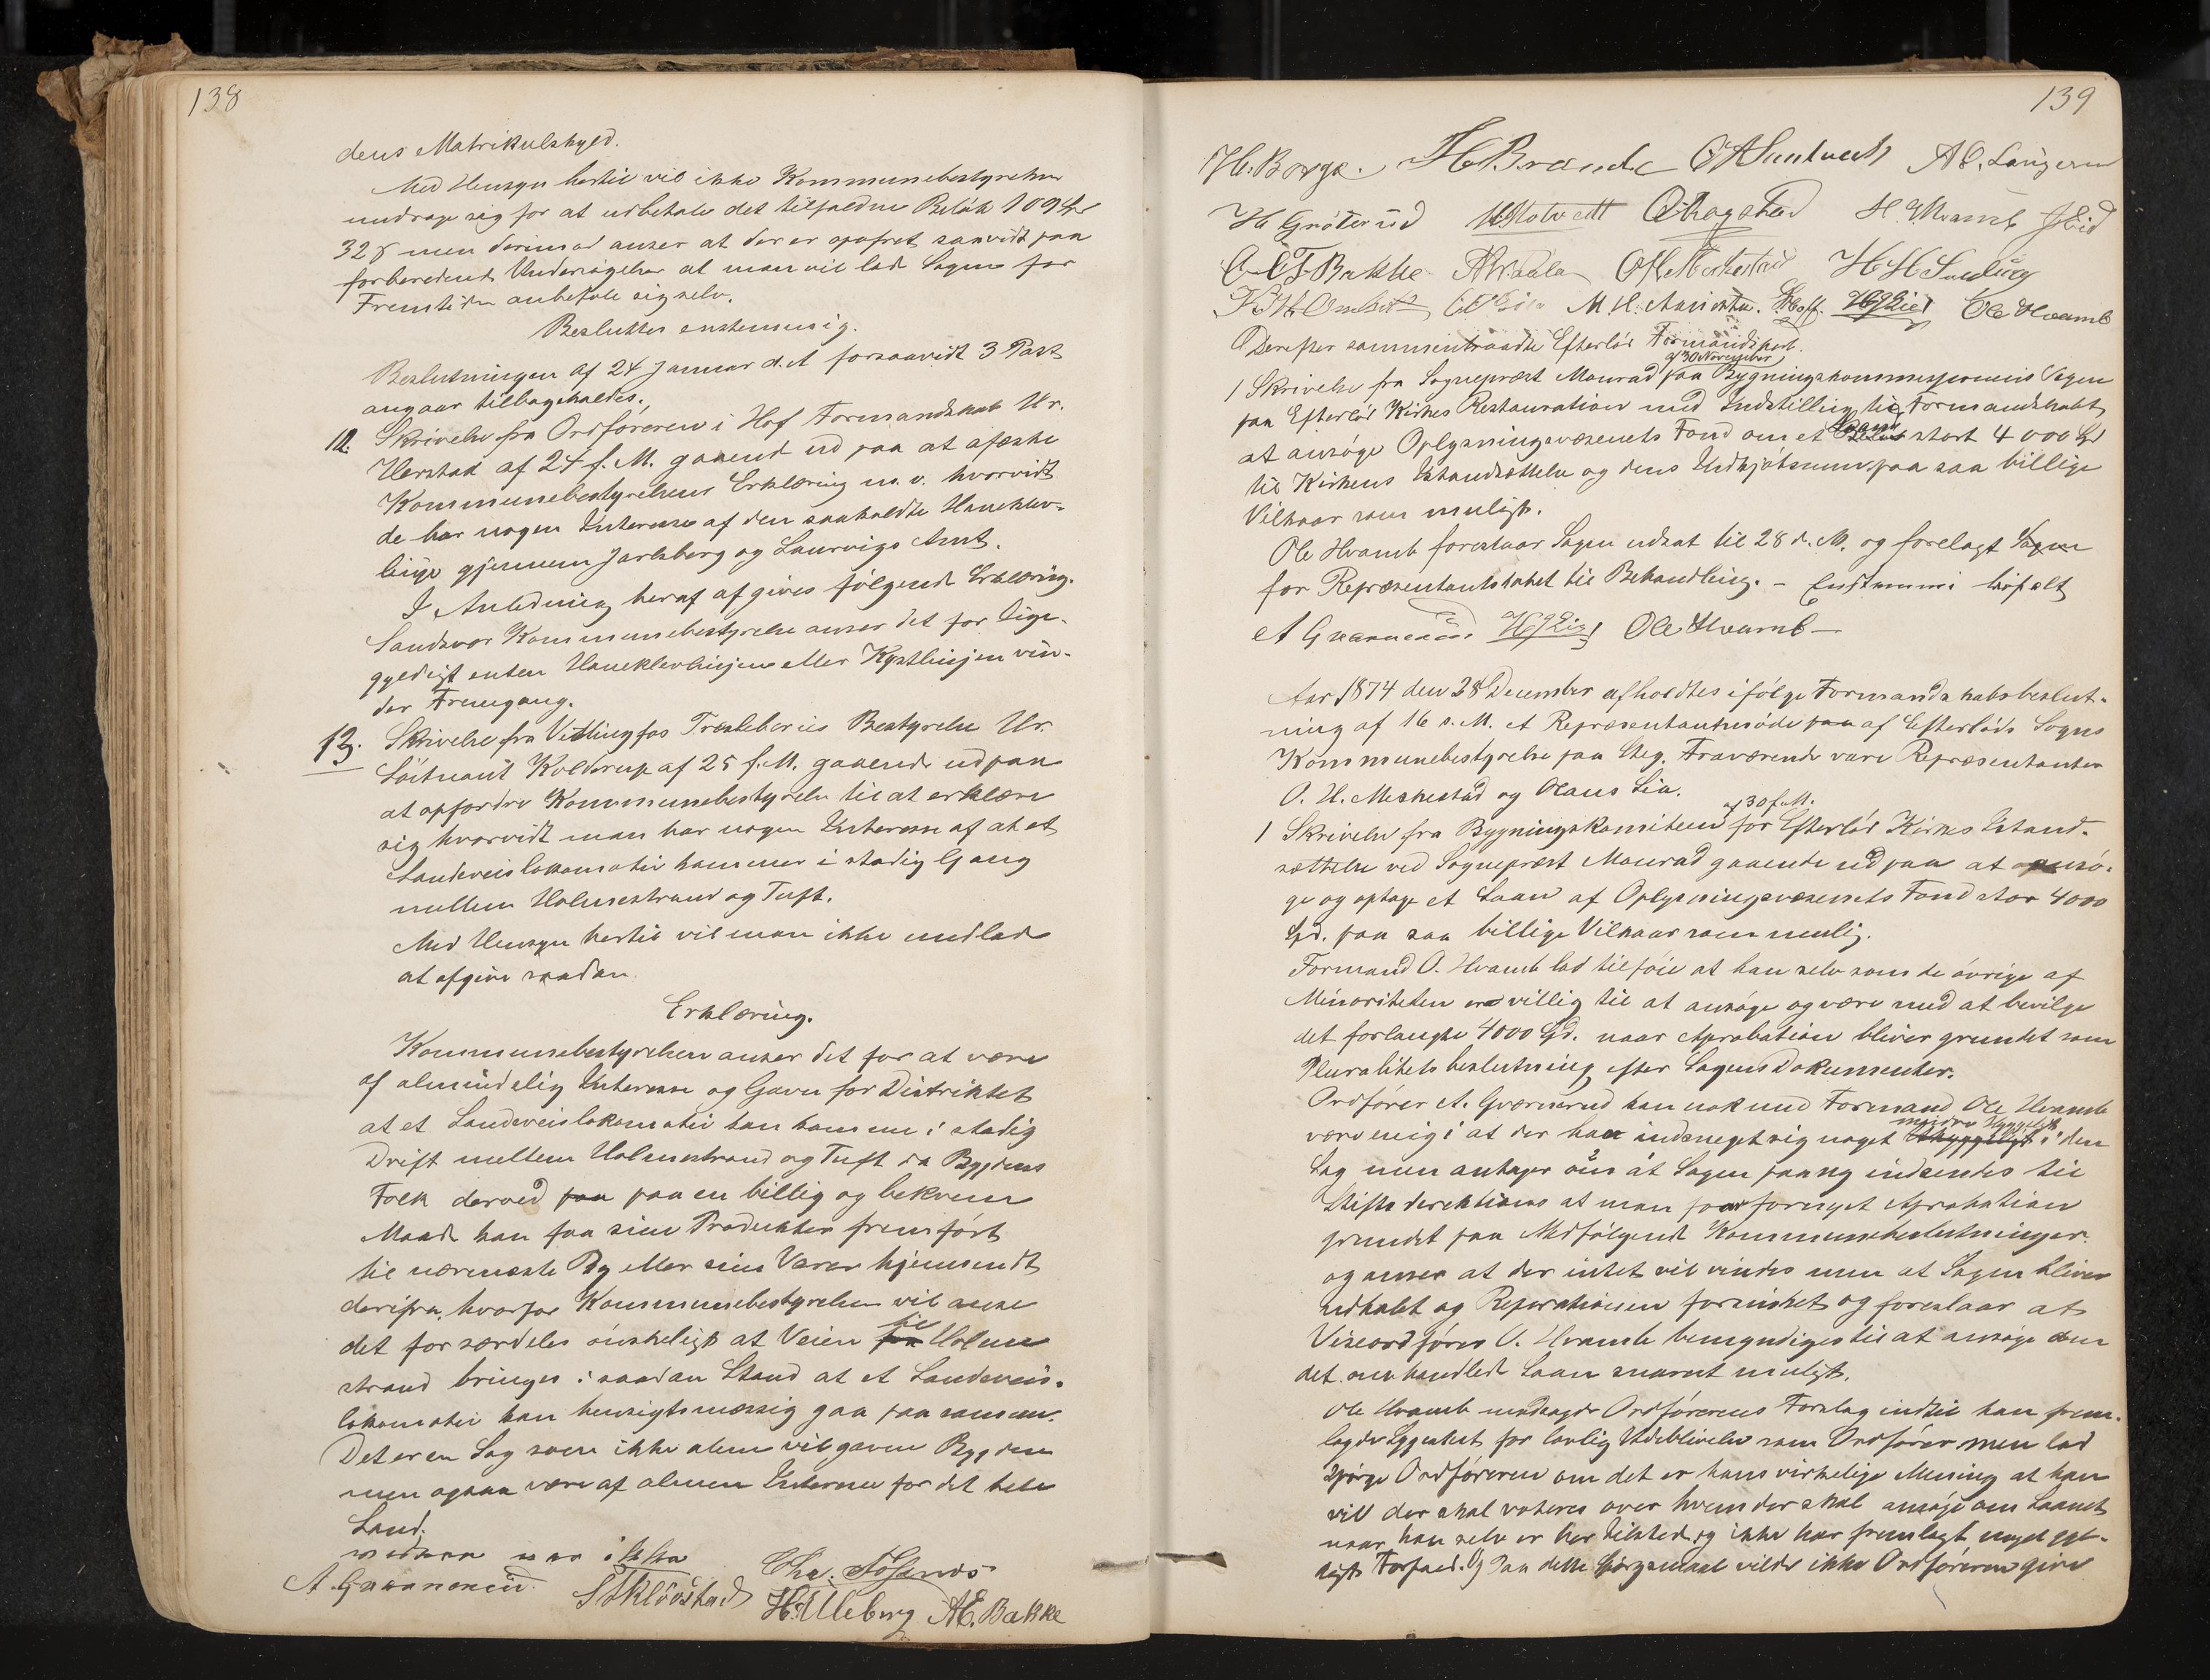 138
dens Matrikulskyld.
Med Hensyn hertil vil ikke Kommunebestyrelsen
unddrage sig for at udbetale det tilfaldne Beløb 109
32 men derimod anser at der er opofret saavidt paa
forberedende Undersøgelser at man vil lade Sagen for
Fremtiden anbefale sig selv.
Besluttes enstemmig.
Beslutningen af 24 Januar d. A forsaavidt 3 Post
angaar tilbagekaldes.
12. Skrivelse fra Ordføreren i Hof Formandskab Hr.
af 24 f. M. gaaende ud paa at afæske
Kommunebestyrelsens Erklæring m. v. hvorvidt
de har nogen Interesse af den saakaldte Haneklev-
linje gjennem Jarlsberg og Laurvigs Amt.
I Anledning heraf afgives følgende Erklæring.
Sandsvær Kommunebestyrelse anser det for lige-
gyldigt enten Haneklevlinjen eller Kystlinjen vin-
der Fremgang.
13. Skrivelse fra Vittingfos Træsliberies Bestyrelse Hr.
Løitnant Kolderup af 25 f. M. gaaende ud paa
at opfordre Kommunebestyrelsen til at erklære
sig hvorvidt man har nogen Interesse af at et
Landeveislokomotiv kommer i stadig Gang
mellem Holmestrand og Tuft.
Med Hensyn hertil vil man ikke undlade
at afgive saadan
Erklæring.
Kommunebestyrelsen anser det for at være
af almindelig Interesse og Gavn for Distriktet
at et Landeveislokomotiv kan komme i stadig
Drift mellem Holmestrand og Tuft da Bygdens
Folk derved paa paa en billig og bekvem
Maade kan faa sine Produkter fremført
til nærmeste By eller sine Varer hjemsendt
derifra, hvorfor Kommunebestyrelsen vil anse
det for særdeles ønskeligt at Veien fra til Holme
strand bringes i saadan Stand at et Landeveis-
lokomotiv kan hensigtsmæssig gaa paa samme.
Det er en Sag som ikke alene vil gavne Bygden
men ogsaa være af almen Interesse for det hele
Land.
A. Gværnerud. S Skløvstad H. Uleberg A E. Bakke
139
H. Borge. H Brande
H Grøterud O Ragstad H. Hvamb J Eid
Bakke H H
HJ Lie Ole Hvamb
Derefter sammentraadte Efterløt Formandskab.
af 30 November
1 Skrivelse fra Sogneprest Monrad paa Bygningskommissionens Vegne
paa Efterløt Kirkes Restauration med Indstilling til Formandskabet
at ansøge Oplysningsvæsenets Fond om et Laan stort 4000 Spd
til Kirkens Istandsættelse og dens paa saa billige
Vilkaar som muligt.
Ole Hvamb foreslaar Sagen udsat til 28 d. M. og forelagt Sagen
for Repræsentantskabet til Behandling. –
A Gværnerud HJ Lie Ole Hvamb –
Aar 1874 den 28 December afholdtes ifølge Formandskabsbeslut-
ning af 16 s. M. et Repræsentantmøde paa af Efterløds Sogns
Kommunebestyrelse paa Steg. Fraværende vare Repræsentanten
O. H. Meskestad og Olaus Lia.
af 30 f. M.
1 Skrivelse fra Bygningskomiteen for Efterløt Kirkes Istand-
sættelse ved Sogneprest Monrad gaaende ud paa at ansø-
ge og optage et Laan af Oplysningsvæsenets Fond stor 4000
Spd. paa saa billige Vilkaar som mulig.
Formand O. Hvamb lod tilføie at han selv som de øvrige af
Minoriteten er villig til at ansøge og være med at bevilge
det forlangte 4000 Spd. naar Aprobation bliver grundet som
Pluralitetsbeslutning efter Sagens Dokumenter.
Ordfører A. Gværnerud kan nok med Formand Ole Hvamb
mindre Hyggeligt
være enig i at der har indsneget sig noget Uhyggeligt i den
Sag men antager at Sagen paany indsendes til
Stiftsdirektionen at man faar fornyet Aprobation
grundet paa Medfølgende Kommunebeslutninger
og anser at der intet vil vindes men at Sagen bliver
udhalet og Reparationen forsinket og foreslaar at
Viseordfører O. Hvamb bemyndiges til at ansøge om
det omhandlede Laan snarest muligt.
Ole Hvamb modsagde Ordførerens Forslag indtil han frem-
lagde for lovlig Udeblivelse som Ordfører men lod
spørge Ordføreren om det er hans virkelige Mening at han
vil der skal voteres over hvem der skal ansøge om Laanet
naar han selv er her tilstede og ikke har fremlagt noget gyl-
digt Forfald. Paa dette Spørgsmaal vilde ikke Ordføreren give